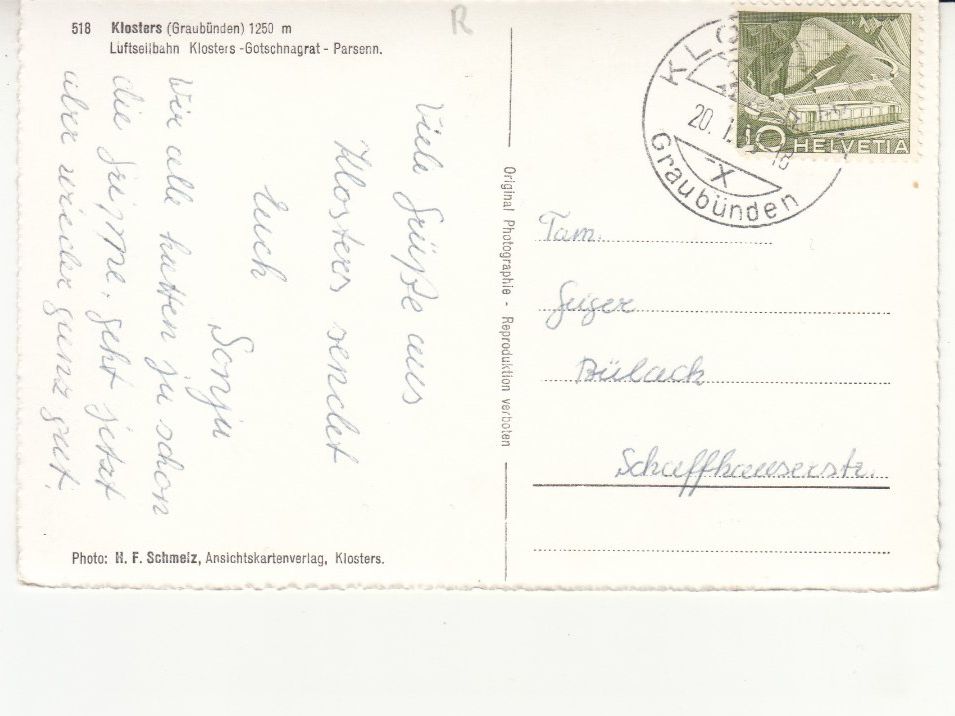 518 Klosters (Graubünden) 1250 m
Luftseilbahn Klosters-Gotschnagrat - Parsenn.
R
Viele Grüße aus
Klosters sendet
Euch
Sonja
Wir alle hatten ja schon
die Grippe, geht jetzt
aber wieder ganz gut.
Photo: H. F. Schmelz, Ansichtskartenverlag, Klosters.
Original Photographie - Reproduktion verboten
10 HELVETIA
KLO
20. I.
18
X
Graubünden
Fam.
Geiger
Bülach
Schaffhauserstr.